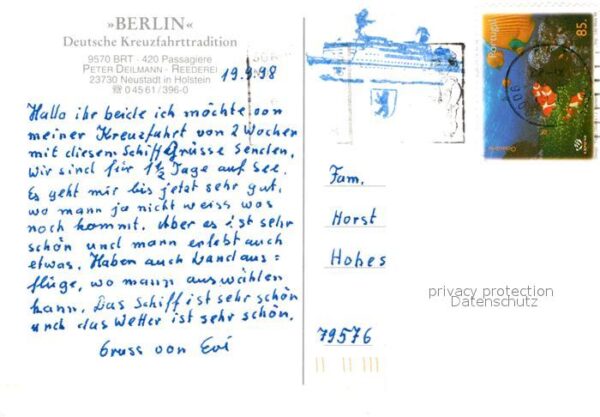 »BERLIN«
Deutsche Kreuzfahrttradition
9570 BRT · 420 Passagiere
PETER DEILMANN · REEDEREI
23730 Neustadt in Holstein
☎ 0 45 61 / 396-0
19.9.98
Hallo ihr beide ich möchte von
meiner Kreuzfahrt von 2 Wochen
mit diesem Schiff Grüsse senden.
Wir sind für 1½ Tage auf See.
Es geht mir bis jetzt sehr gut,
wo mann ja nicht weiss was
noch kommt. Aber es ist sehr
schön und mann erlebt auch
etwas. Haben auch Landaus=
flüge, wo mann auswählen
kann. Das Schiff ist sehr schön
und das Wetter ist sehr schön.
Gruss von Evi
Portugal
85.
Fam.
Horst
Hohes
privacy protection
Datenschutz
79576